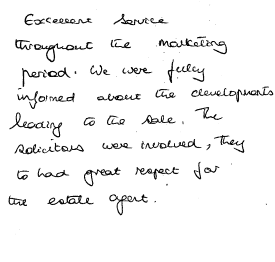 Excellent Service
throughout the marketing
period. We were fully
informed about the developments
leading to the sale. The
solicitors were involved, they
to had great respect for
the estate agent.